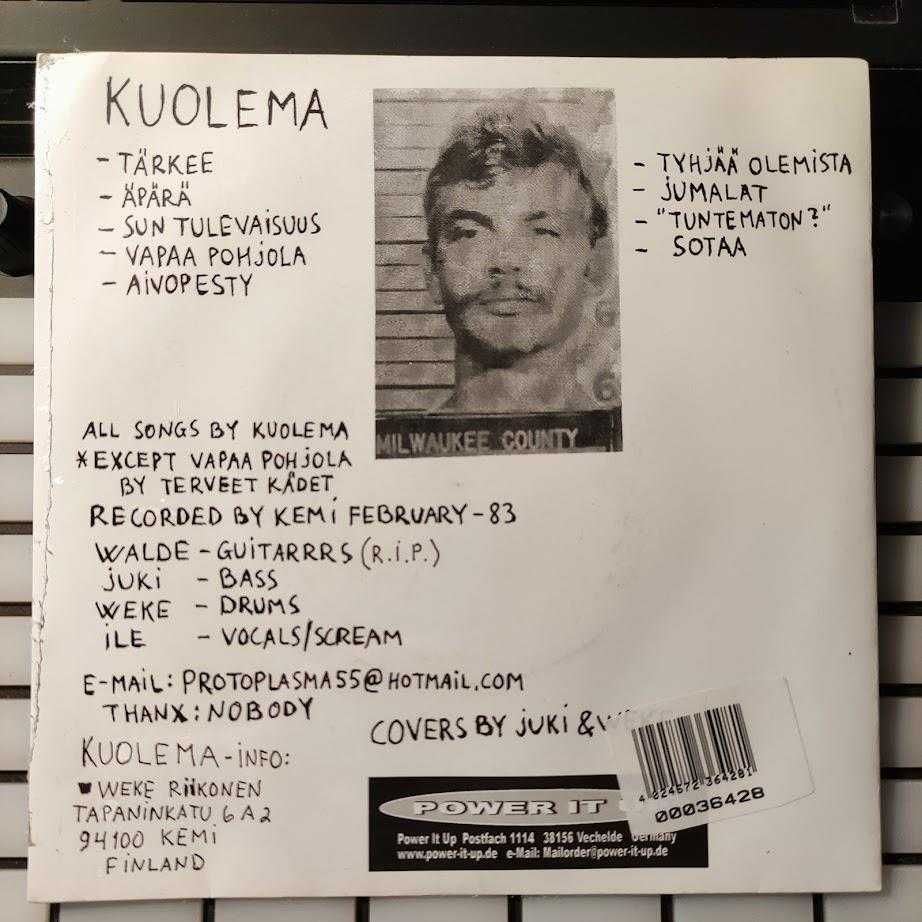 KUOLEMA
- TÄRKEE
- ÄPÄRÄ
- SUN TULEVAISUUS
- VAPAA POHJOLA
- AIVOPESTY
- TYHJÄÄ OLEMISTA
- JUMALAT
- "TUNTEMATON?"
- SOTAA
6
6
MILWAUKEE COUNTY
ALL SONGS BY KUOLEMA
*EXCEPT VAPAA POHJOLA
BY TERVEET KÄDET
RECORDED BY KEMI FEBRUARY-83
WALDE - GUITARRRS (R.I.P.)
JUKI - BASS
WEKE - DRUMS
ILE - VOCALS/SCREAM
E-MAIL: PROTOPLASMA55@HOTMAIL.COM
THANX: NOBODY
COVERS BY JUKI & WEKE
KUOLEMA-INFO:
WEKE RIIKONEN
TAPANINKATU 6 A 2
94100 KEMI
FINLAND
4 024572 364281
00036428
POWER IT
Power It Up Postfach 1114 38156 Vechelde Germany
www.power-it-up.de e-Mail: Mailorder@power-it-up.de